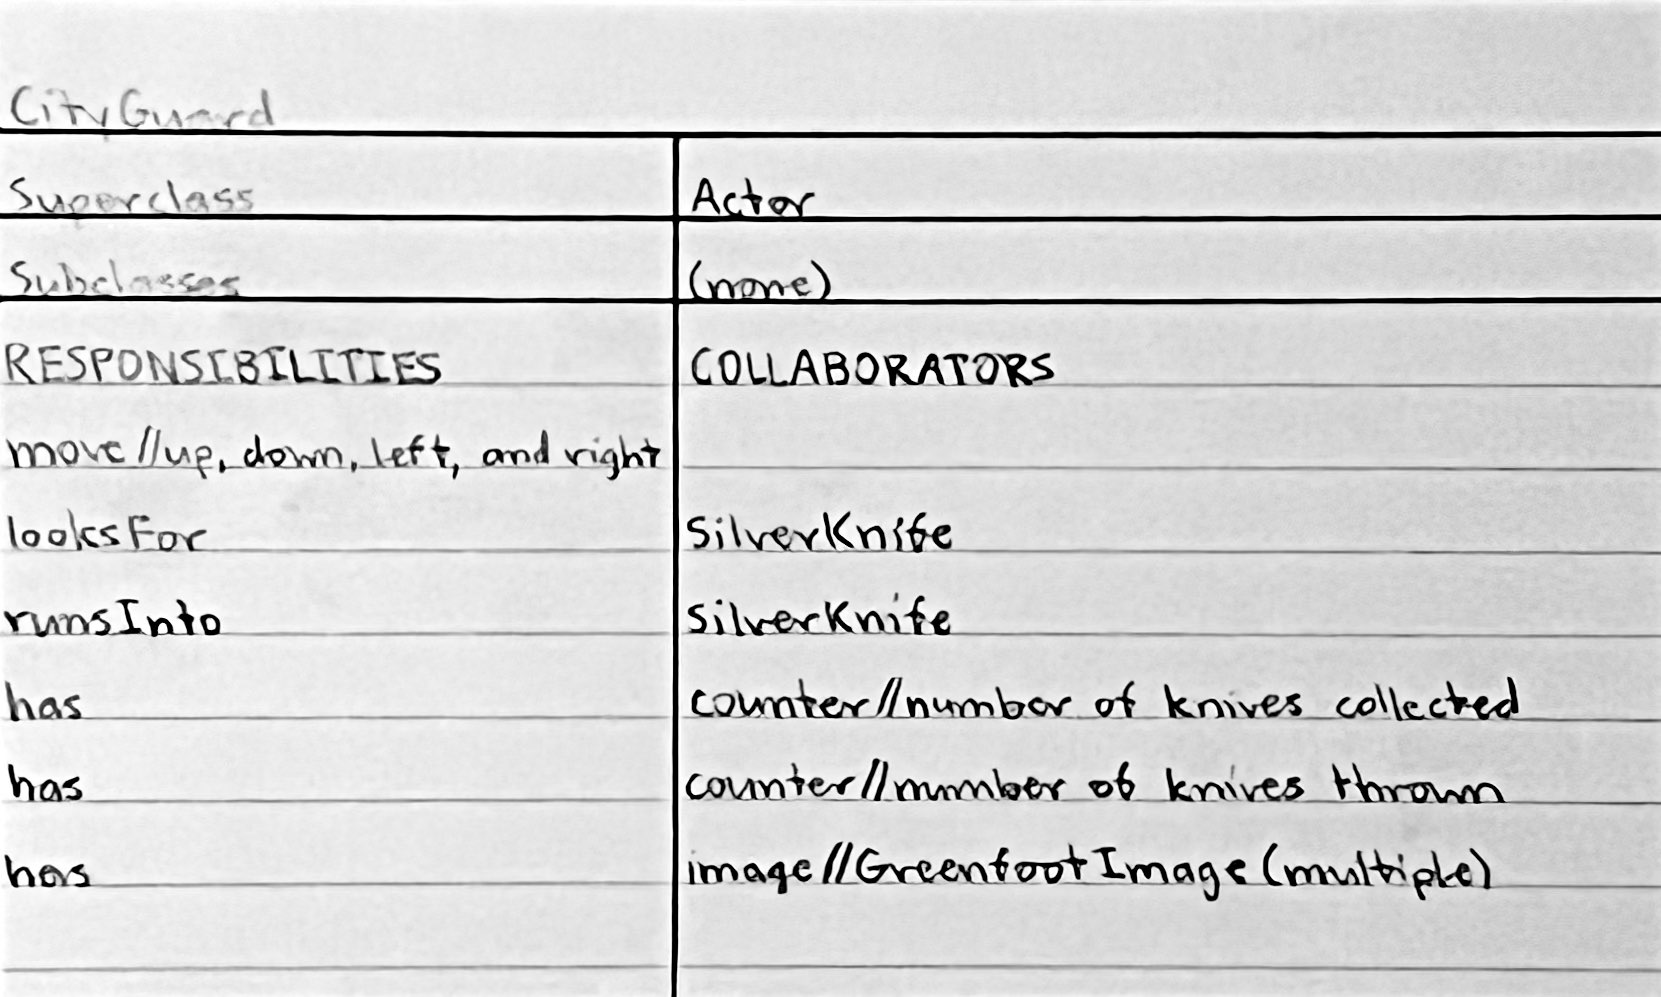 CityGuard
Superclass Actor
Subclasses (none)
RESPONSIBILITIES COLLABORATORS
move//up, down, left, and right
looksFor SilverKnife
runsInto SilverKnife
has counter//number of knives collected
has counter//number of knives thrown
has image//GreenfootImage (multiple)